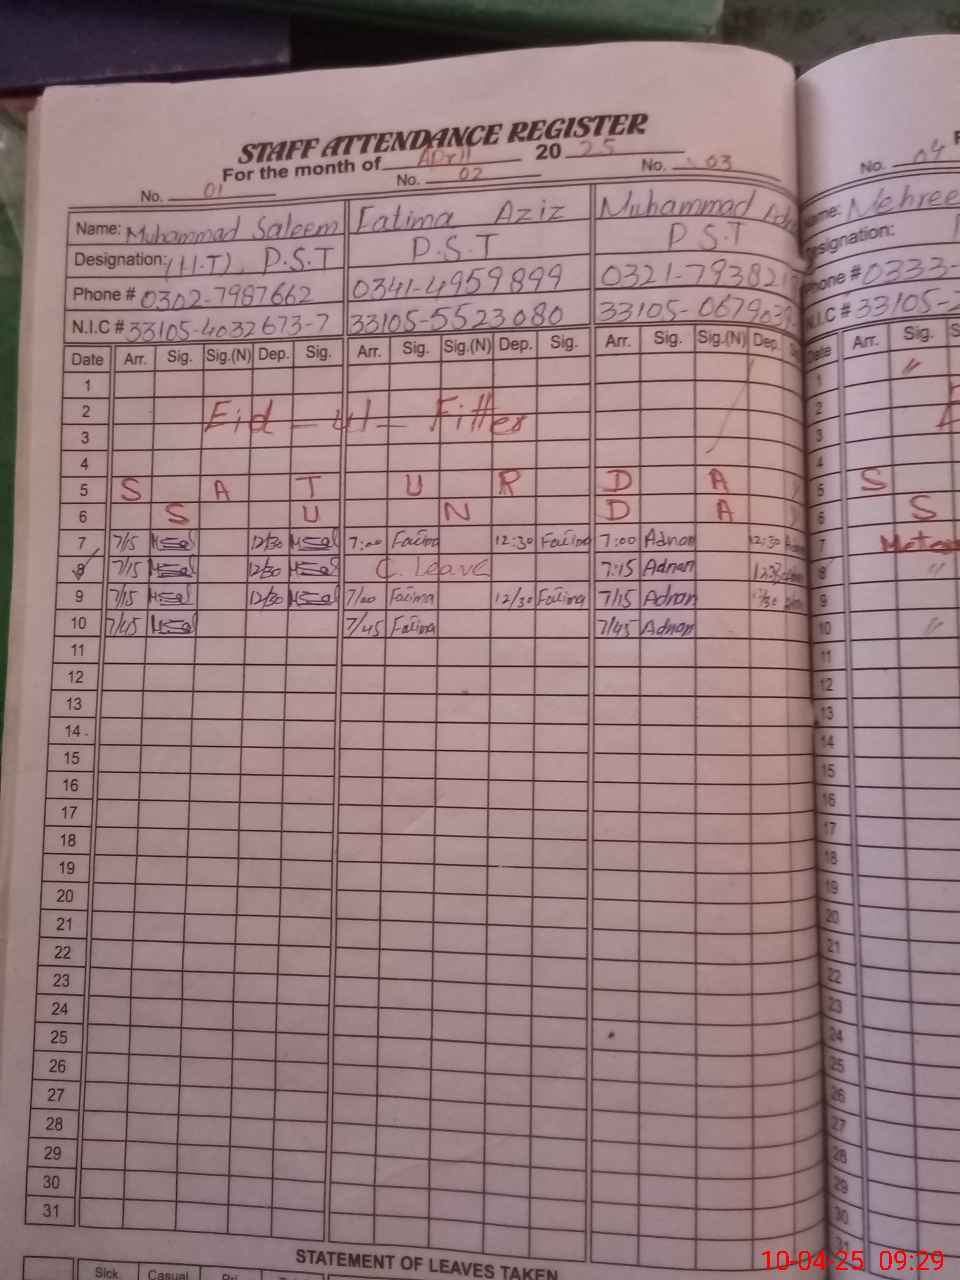 STAFF ATTENDANCE REGISTER
For the month of April 2025
No. 01 No. 02 No. 03
Name: Muhammad Saleem Fatima Aziz Muhammad
Designation: (H.T) P.S.T P.S.T P S.T
Phone # 0302-7987662 0341-4959899 0321-793821
N.I.C # 33105-4032673-7 33105-5523080 33105-0679039
Date Arr. Sig. Sig.(N) Dep. Sig. Arr. Sig. Sig.(N) Dep. Sig. Arr. Sig. Sig.(N) Dep.
1
2 Eid_ul_Fitter
3
4
5 S A T U R D A
6 S U N D A
7 7/15 12/30 7:00 Fatima 12:30 Fatima 7:00 Adnan 12:30
8 7/15 12/30 C. Leave 7:15 Adnan
9 7/15 12/30 7/20 Fatima 12/30 Fatima 7/15 Adnan
10 7/45 7/45 Fatima 7/45 Adnan
11
12
13
14
15
16
17
18
19
20
21
22
23
24
25
26
27
28
29
30
31
STATEMENT OF LEAVES TAKEN
Sick Casual
No. 04
Name: Mehree
Designation:
Phone # 0333-
N.I.C # 33105-
Date Arr. Sig.
1 "
2
3
4
5 S
6 S
7
8 "
9
10 "
11
12
13
14
15
16
17
18
19
20
21
22
23
24
25
26
27
28
29
30
31
10-04-25 09:29